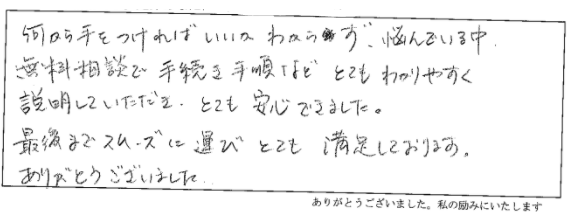 何から手をつければいいか わからず、悩んでいる中
無料相談で 手続き手順など とても わかりやすく
説明していただき、とても 安心できました。
最後までスムーズに 運び とても 満足しております。
ありがとうございました
ありがとうございました。私の励みにいたします